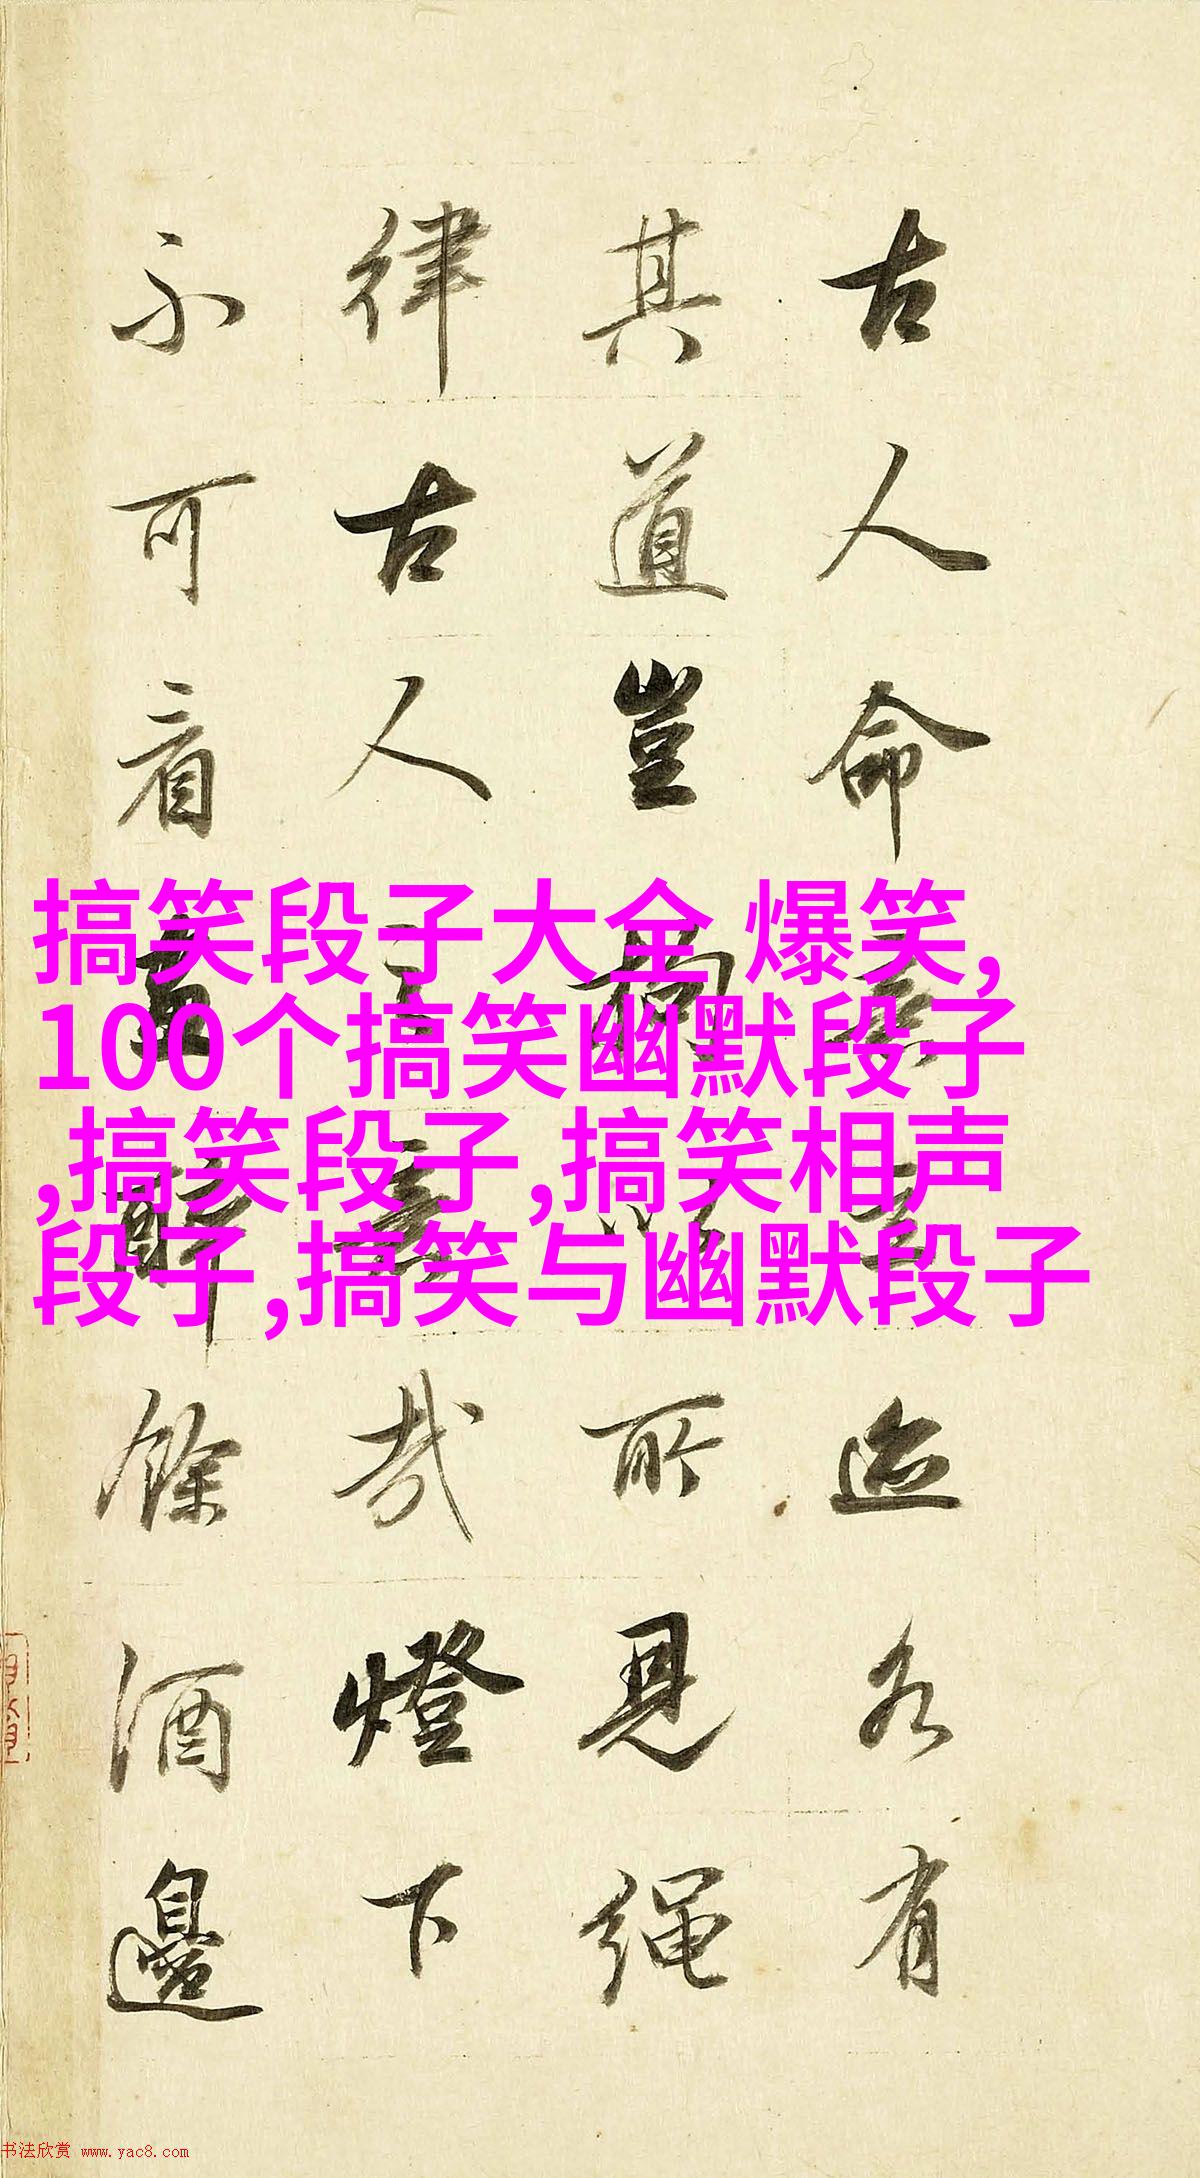 古人命意立迹各有
其道豈拘以所見繩
律古人之意哉燈下
不可看畫醉餘酒邊
搞笑段子大全 爆笑,
100个搞笑幽默段子
,搞笑段子,搞笑相声
段子,搞笑与幽默段子
书法欣赏 www.yac8.com